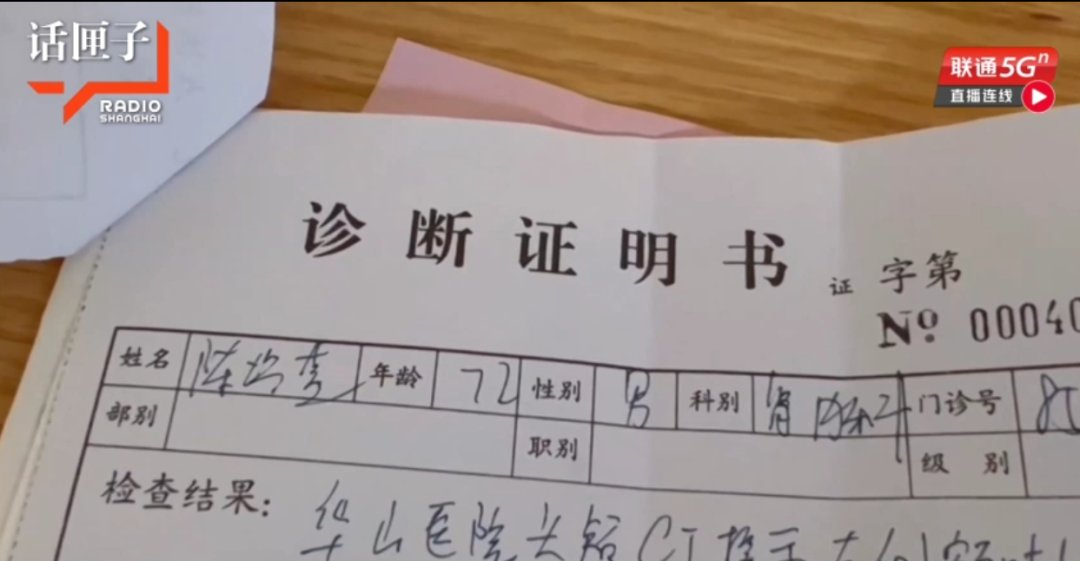 话匣子
RADIO
SHANGHAI
联通5Gⁿ
直播连线
诊断证明书
证 字第
№ 00040
姓名 陈 年龄 72 性别 男 科别 肾内科 门诊号
部别 职别 级别
检查结果:
华山医院头颅CT提示